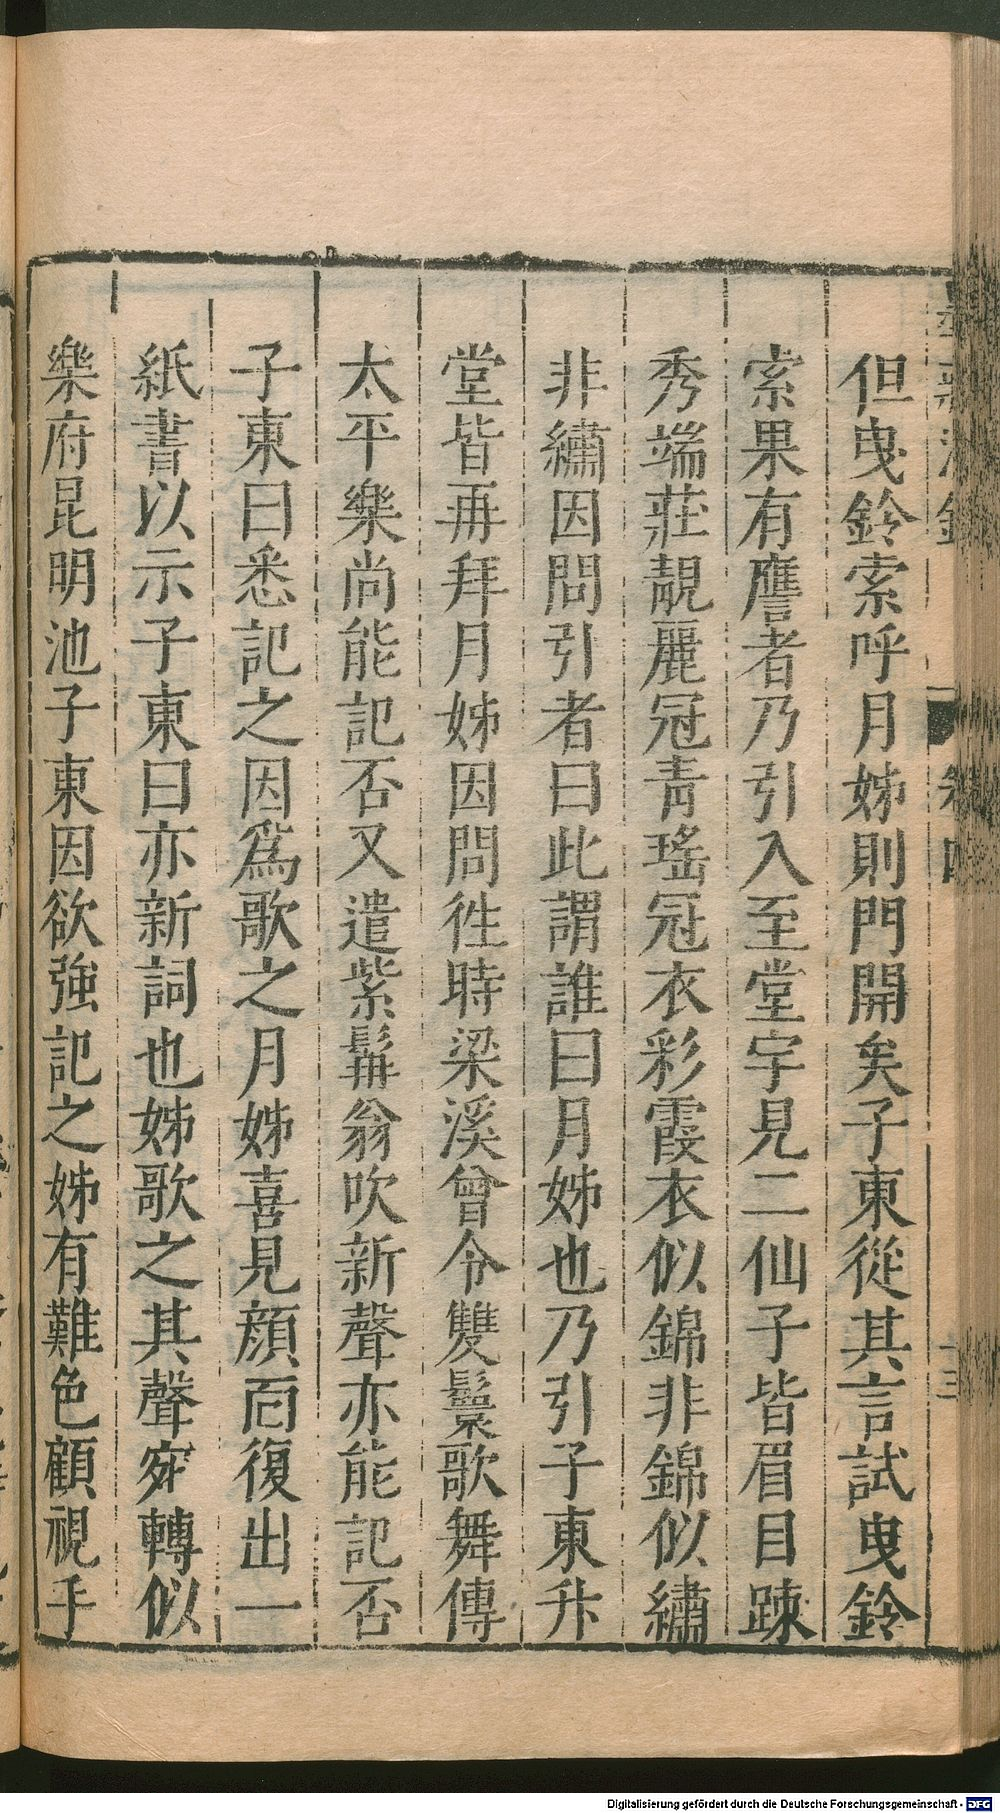 但曳鈴索呼月姊則門開矣子東從其言試曳鈴
索果有譍者乃引入至堂宇見二仙子皆眉目踈
秀端莊靚麗冠青瑤冠衣彩霞衣似錦非錦似繡
非繡因問引者曰此謂誰曰月姊也乃引子東升
堂皆再拜月姊因問徃時梁溪曾令雙鬟歌舞傳
太平樂尚能記否又遣紫髯翁吹新聲亦能記否
子東曰悉記之因爲歌之月姊喜見顔靣復出一
紙書以示子東曰亦新詞也姊歌之其聲宛轉似
樂府昆明池子東因欲強記之姊有難色顧視手
Digitalisierung gefördert durch die Deutsche Forschungsgemeinschaft - DFG